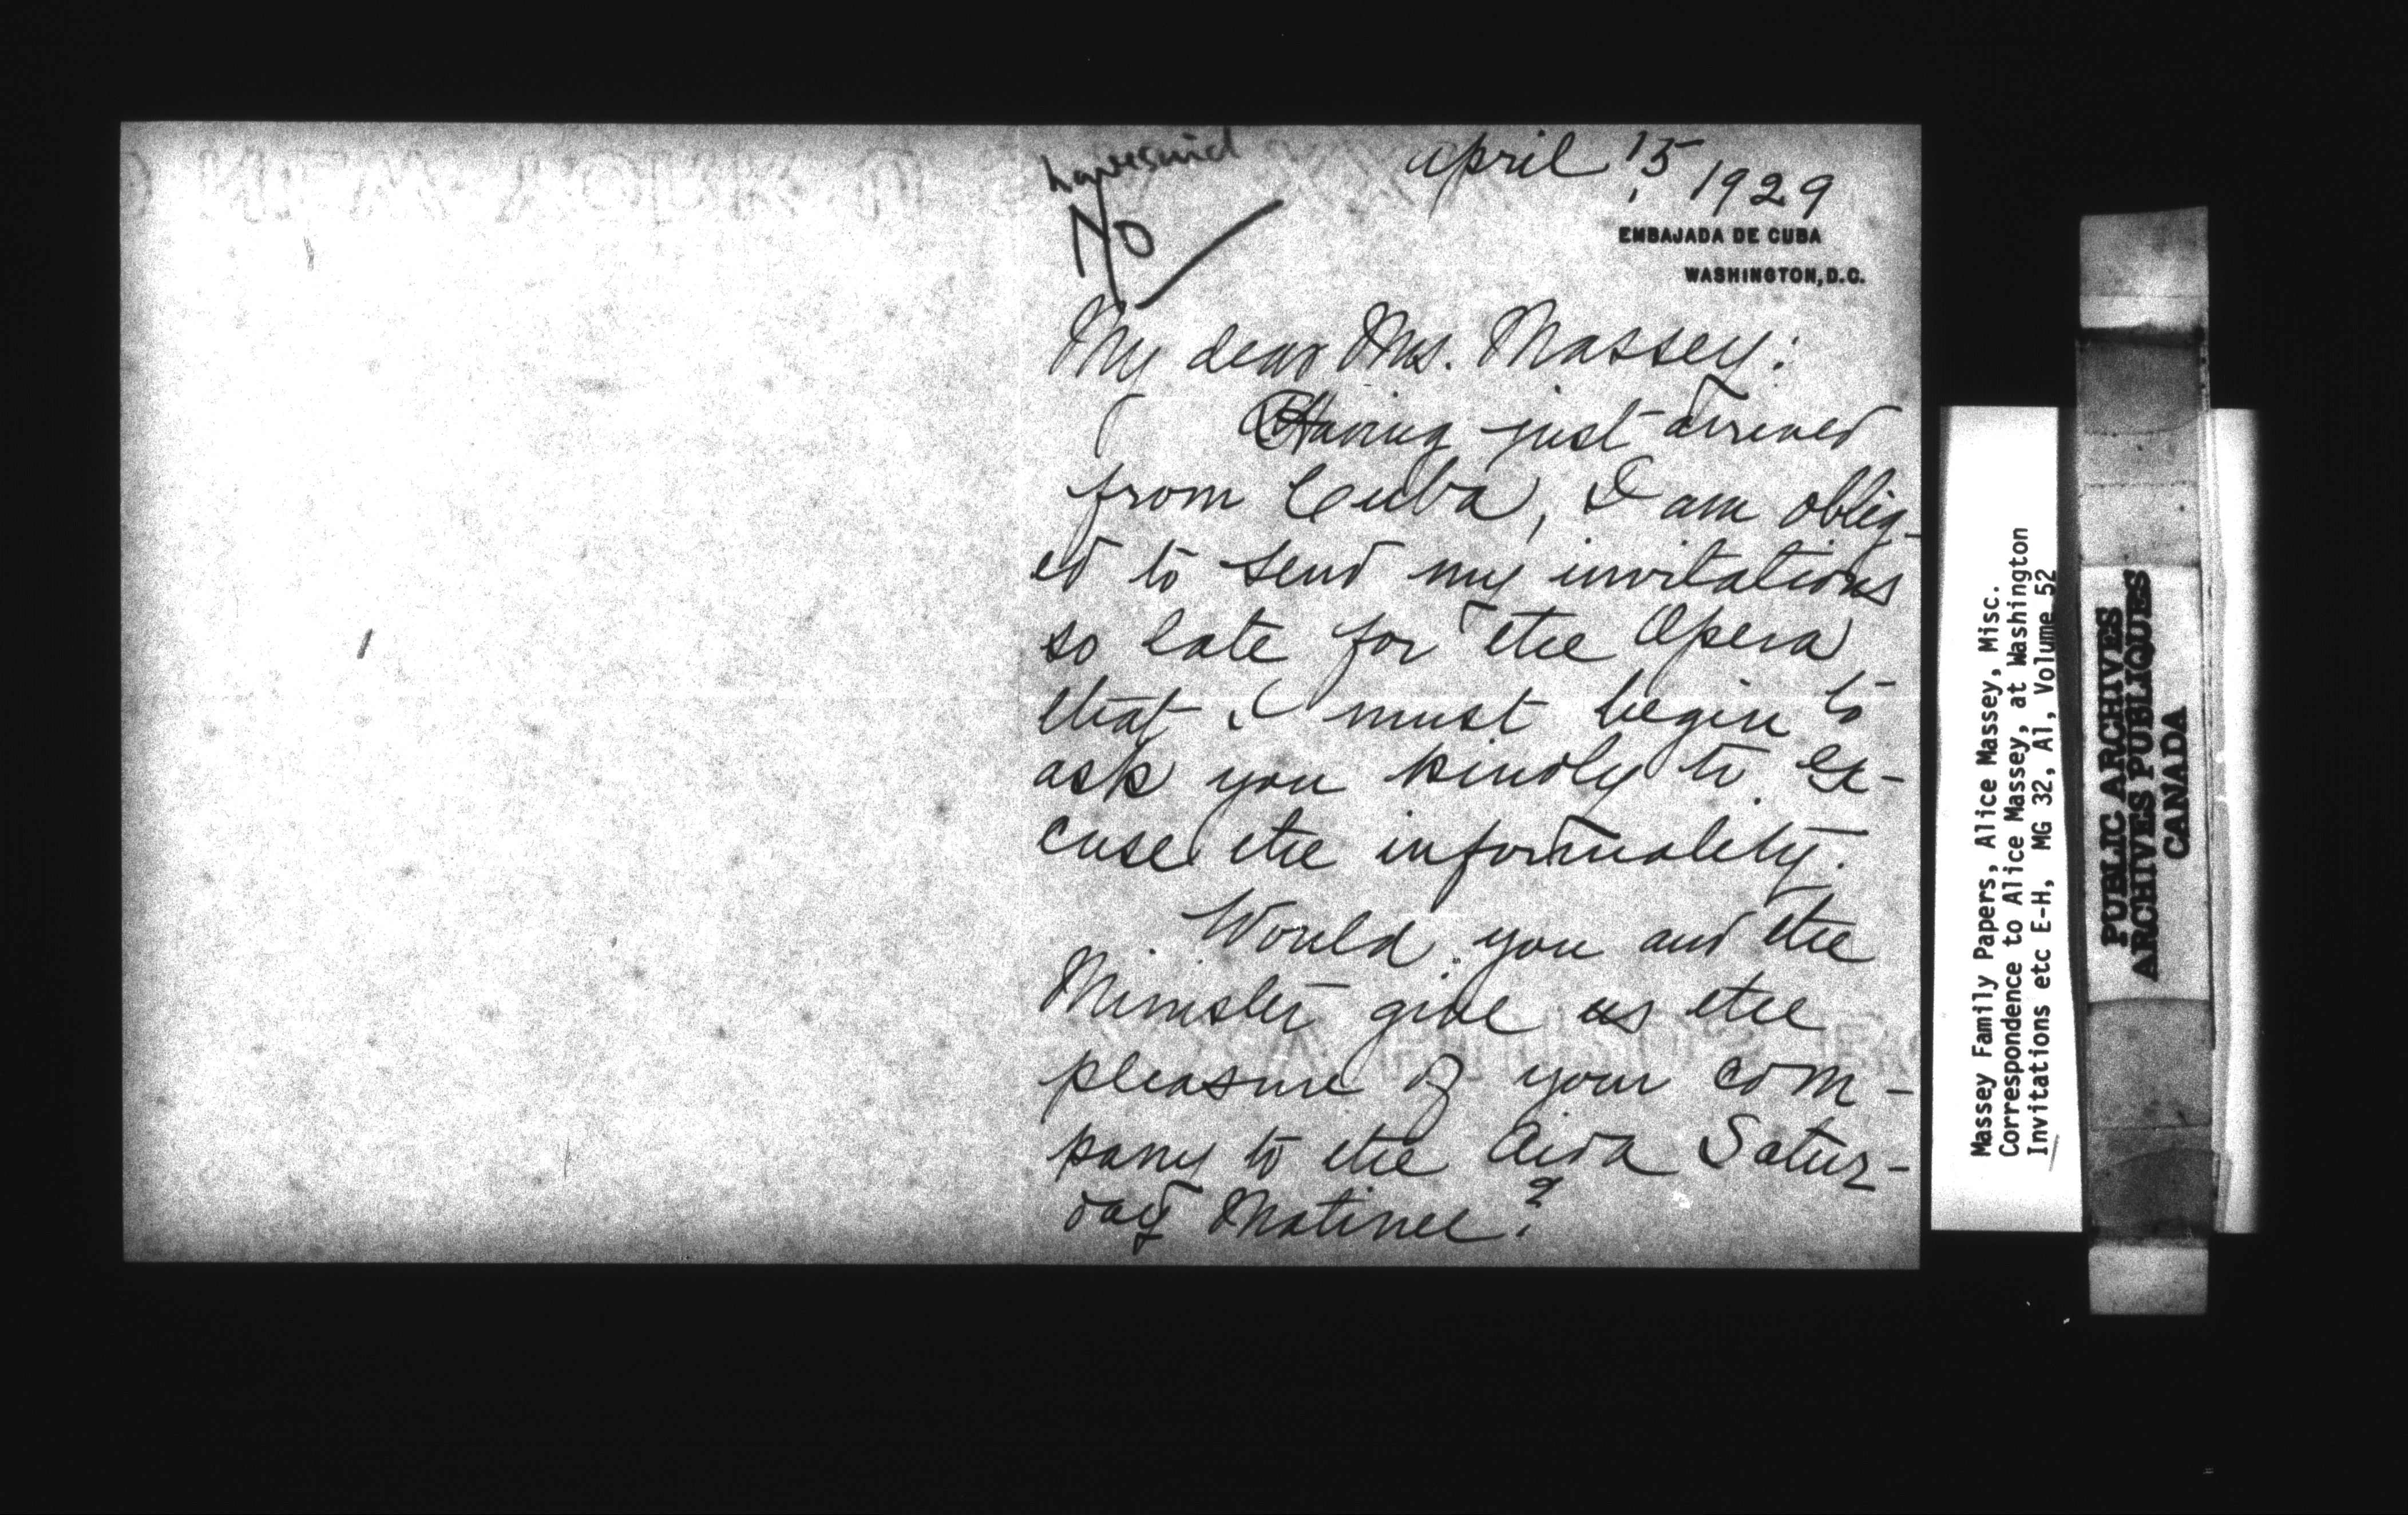 have said
No
April 15, 1929
EMBAJADA DE CUBA
WASHINGTON, D.C.
My dear Mrs. Massey:
Having just arrived
from Cuba, I am oblig-
ed to send my invitations
so late for the Opera
that I must begin to
ask you kindly to ex-
cuse the informality.
Would you and the
Minister give us the
pleasure of your com-
pany to the Aida Satur-
day Matinee?
Massey Family Papers, Alice Massey, Misc.
Correspondence to Alice Massey, at Washington
Invitations etc E-H, MG 32, A1, Volume 52
PUBLIC ARCHIVES
ARCHIVES PUBLIQUES
CANADA